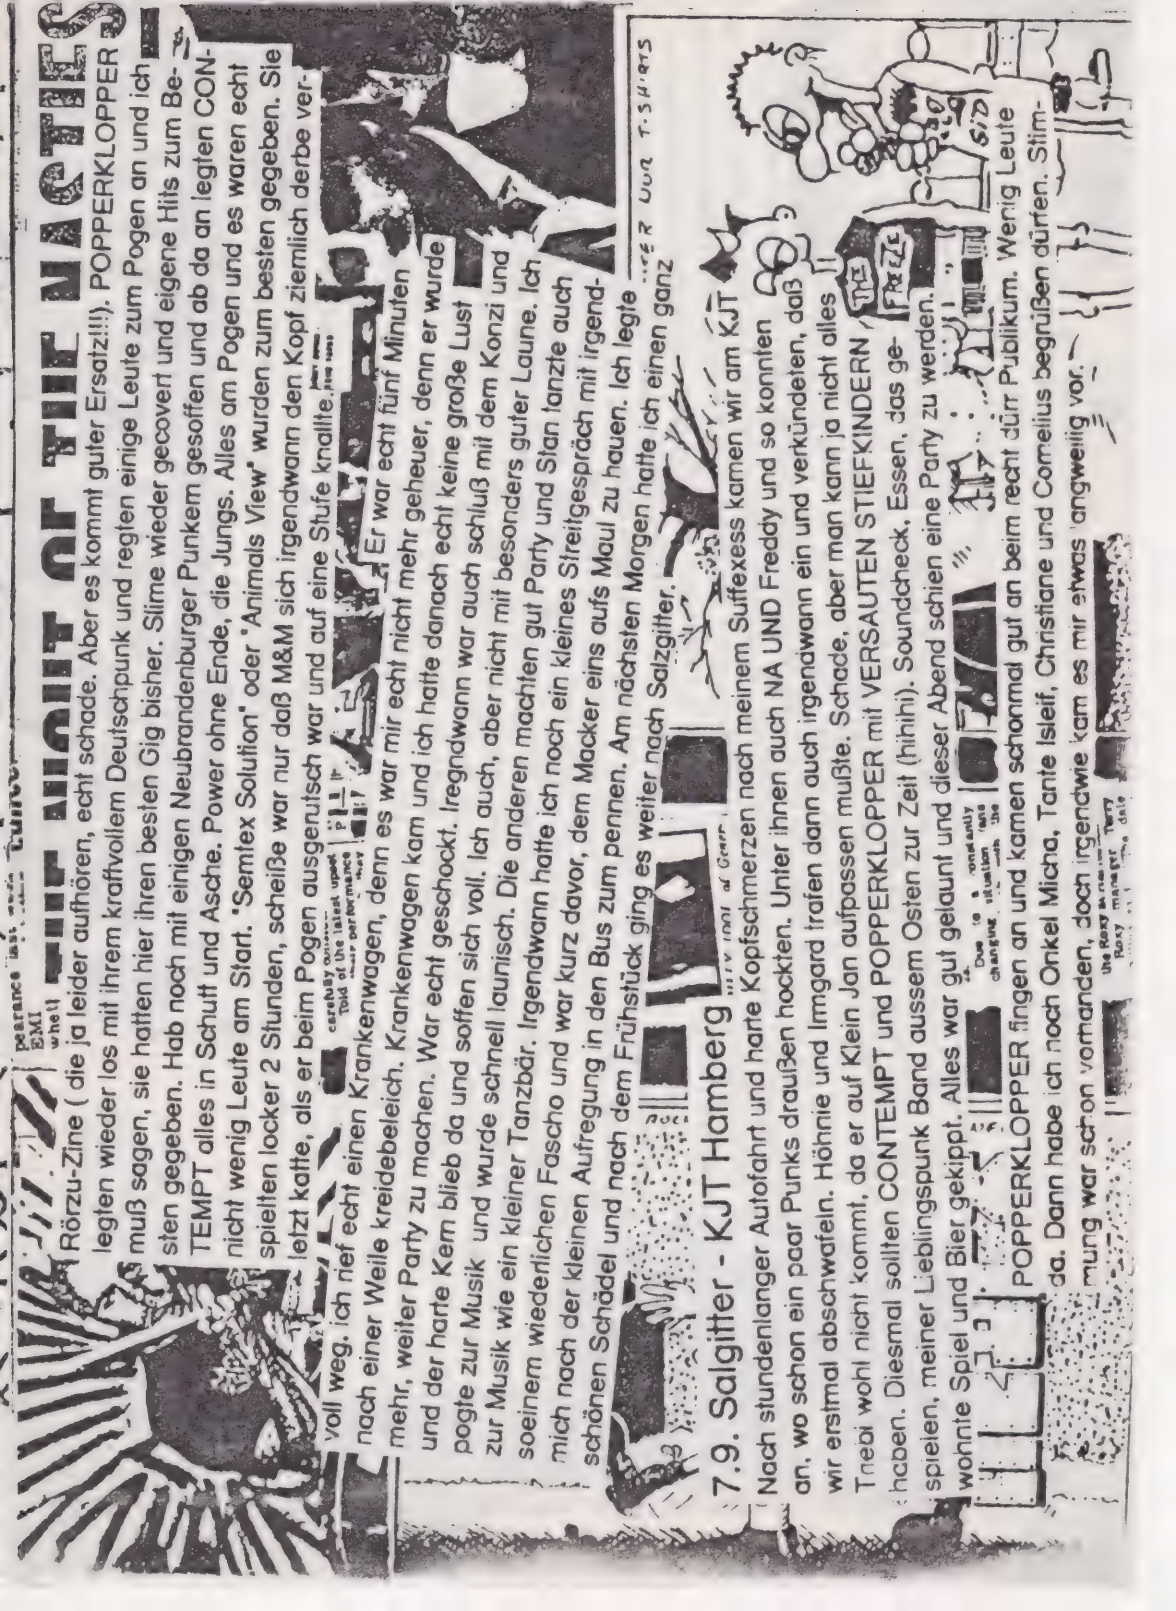 pearance
EMI
THE NIGHT OF THE NASTIES
Rörzu-Zine ( die ja leider aufhören, echt schade. Aber es kommt guter Ersatz!!!). POPPERKLOPPER
legten wieder los mit ihrem kraftvollem Deutschpunk und regten einige Leute zum Pogen an und ich
muß sagen, sie hatten hier ihren besten Gig bisher. Slime wieder gecovert und eigene Hits zum Be-
sten gegeben. Hab noch mit einigen Neubrandenburger Punkern gesoffen und ab da an legten CON-
TEMPT alles in Schutt und Asche. Power ohne Ende, die Jungs. Alles am Pogen und es waren echt
nicht wenig Leute am Start. "Semtex Solution" oder "Animals View" wurden zum besten gegeben. Sie
spielten locker 2 Stunden, scheiße war nur daß M&M sich irgendwann den Kopf ziemlich derbe ver-
letzt hatte, als er beim Pogen ausgerutsch war und auf eine Stufe knallte.
carefully
Told of the latest upset
performance
Er war echt fünf Minuten
voll weg. Ich rief echt einen Krankenwagen, denn es war mir echt nicht mehr geheuer, denn er wurde
nach einer Weile kreidebeleich. Krankenwagen kam und ich hatte danach echt keine große Lust
mehr, weiter Party zu machen. War echt geschockt. Iregndwann war auch schluß mit dem Konzi und
und der harte Kern blieb da und soffen sich voll. Ich auch, aber nicht mit besonders guter Laune. Ich
pogte zur Musik und wurde schnell launisch. Die anderen machten gut Party und Stan tanzte auch
zur Musik wie ein kleiner Tanzbär. Irgendwann hatte ich noch ein kleines Streitgespräch mit irgend-
soeinem wiederlichen Fascho und war kurz davor, dem Macker eins aufs Maul zu hauen. Ich legte
mich nach der kleinen Aufregung in den Bus zum pennen. Am nächsten Morgen hatte ich einen ganz
schönen Schädel und nach dem Frühstück ging es weiter nach Salzgitter.
T-SHIRTS
7.9. Salgitter - KJT Hamberg
Nach stundenlanger Autofahrt und harte Kopfschmerzen nach meinem Suffexess kamen wir am KJT
an, wo schon ein paar Punks draußen hockten. Unter ihnen auch NA UND Freddy und so konnten
wir erstmal abschwafeln. Höhnie und Irmgard trafen dann auch irgendwann ein und verkündeten, daß
Triebi wohl nicht kommt, da er auf Klein Jan aufpassen mußte. Schade, aber man kann ja nicht alles
haben. Diesmal sollten CONTEMPT und POPPERKLOPPER mit VERSAUTEN STIEFKINDERN
spielen, meiner Lieblingspunk Band aussem Osten zur Zeit (hihihi). Soundcheck, Essen, das ge-
wohnte Spiel und Bier gekippt. Alles war gut gelaunt und dieser Abend schien eine Party zu werden.
THE
FREEZE
SID
Due to a constantly
changing situation
POPPERKLOPPER fingen an und kamen schonmal gut an beim recht dürr Publikum. Wenig Leute
da. Dann habe ich noch Onkel Micha, Tante Isleif, Christiane und Cornelius begrüßen dürfen. Stim-
mung war schon vorhanden, doch irgendwie kam es mir etwas langweilig vor.
the Roxy
Roxy manager Terry